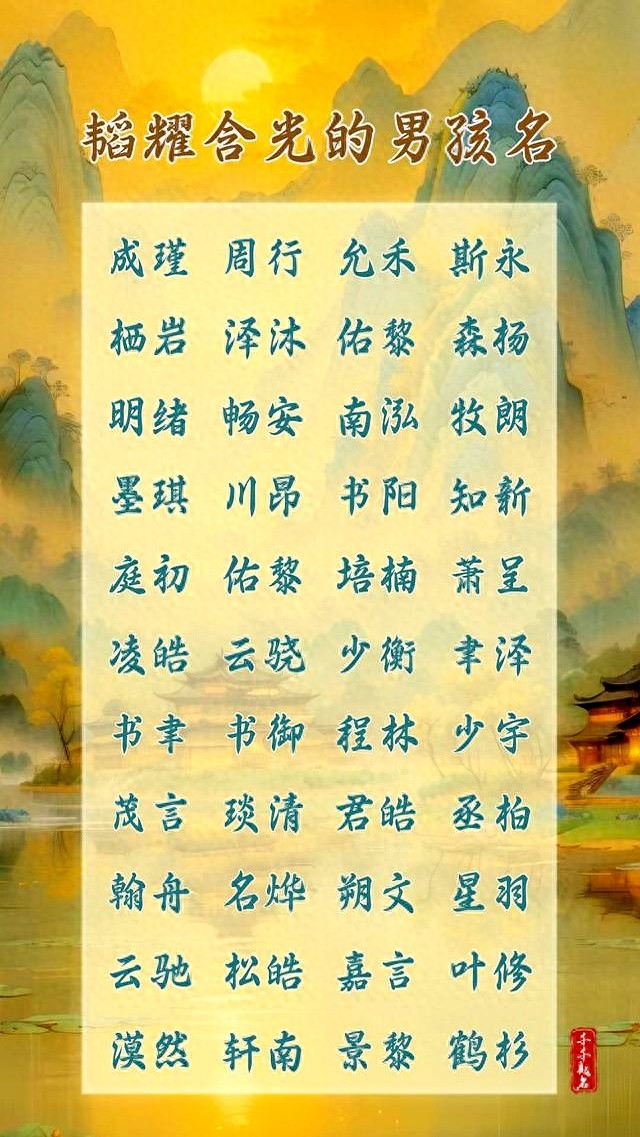 韬耀含光的男孩名
成瑾 周行 允禾 斯永
栖岩 泽沐 佑黎 森扬
明绪 畅安 南泓 牧朗
墨琪 川昂 书阳 知新
庭初 佑黎 培楠 萧呈
凌皓 云骁 少衡 聿泽
书聿 书御 程林 少宇
茂言 琰清 君皓 丞柏
翰舟 名烨 朔文 星羽
云驰 松皓 嘉言 叶修
漠然 轩南 景黎 鹤杉